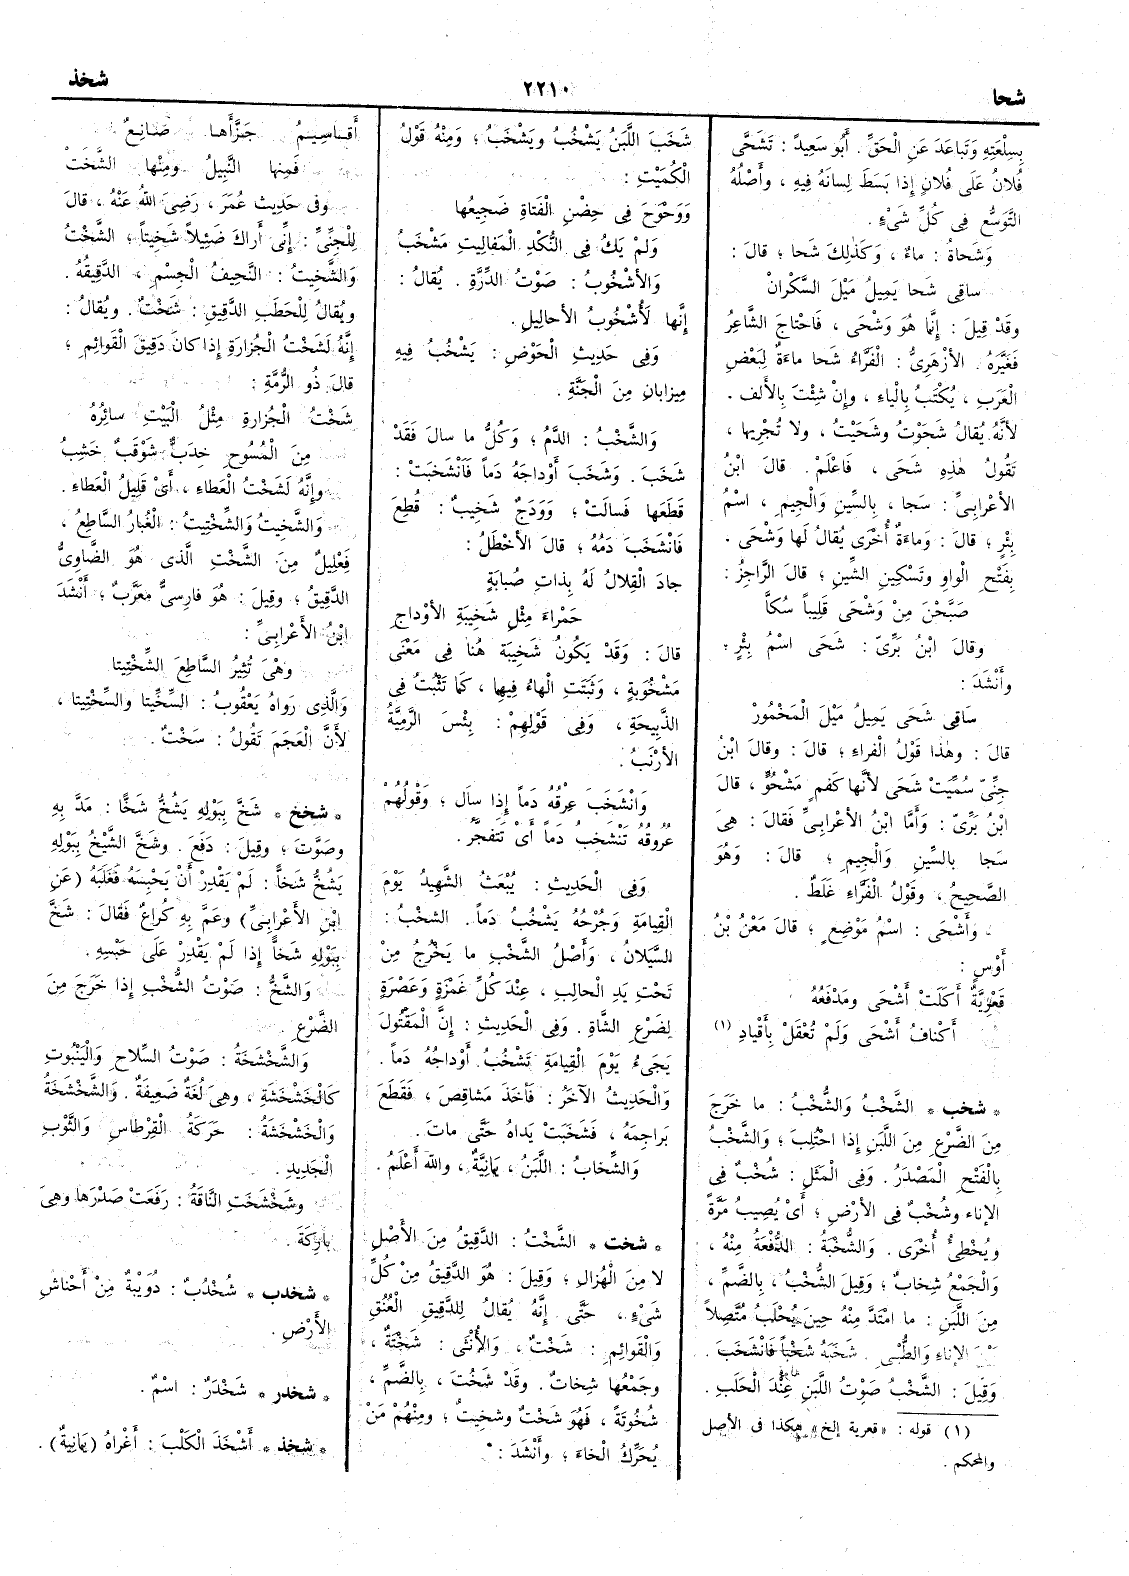 شحا
٢٢١٠
شخذ
بِسِلْعَتِهِ وَتَباعَدَ عَنِ الْحَقِّ . أَبُو سَعِيدٍ : تَشَحَّى
فُلانٌ عَلَى فُلانٍ إِذا بَسَطَ لِسانَهُ فِيهِ ، وَأَصْلُهُ
التَّوَسُّعُ فِى كُلِّ شَىْءٍ .
وَشَحاةُ : ماءٌ ، وَكَذلِكَ شَحا ؛ قالَ :
ساقِى شَحا يَمِيلُ مَيْلَ السَّكْرانْ
وقَدْ قِيلَ : إِنَّما هُوَ وَشْحَى ، فَاحْتاجَ الشَّاعِرُ
فَغَيَّرَهُ . الأَزْهَرِىُّ : الْفَرَّاءُ شَحا ماءَةٌ لِبَعْضِ
الْعَرَبِ ، يُكْتَبُ بِالْياءِ ، وإِنْ شِئْتَ بِالأَلف .
لأَنَّهُ يُقالُ شَحَوْتُ وشَحَيْتُ ، ولا تُجْرِيها ،
تَقُولُ هٰذِهِ شَحَى ، فَاعْلَمْ . قالَ ابْنُ
الأَعْرابِىِّ : سَجا ، بِالسِّينِ وَالْجِيمِ ، اسْمُ
بِئْرٍ ؛ قالَ : وَماءَةٌ أُخْرَى يُقالُ لَها وَشْحَى .
بِفَتْحِ الْواوِ وتَسْكِينِ الشِّينِ ؛ قالَ الرَّاجِزُ :
صَبَّحْنَ مِنْ وَشْحَى قَلِيباً سُكَّا
وقالَ ابْنُ بَرِّىّ : شَحَى اسْمُ بِئْرٍ ؛
وأَنْشَدَ :
ساقِى شَحَى يَمِيلُ مَيْلَ الْمَخْمُورْ
قالَ : وهٰذا قَوْلُ الْفَراءِ ؛ قالَ : وقالَ ابْنُ
جِنِّىّ سُمِّيَتْ شَحَى لأَنَّها كَفَمٍ مَشْحُوٍّ ، قالَ
ابْنُ بَرِّىّ : وَأَمَّا ابْنُ الأَعْرابِىِّ فَقالَ : هِىَ
سَجا بِالسِّينِ وَالْجِيمِ ؛ قالَ : وَهُوَ
الصَّحِيحُ ، وقَوْلُ الْفَرَّاءِ غَلَطٌ .
وَأَشْحَى : اسْمُ مَوْضِعٍ ؛ قالَ مَعْنُ بْنُ
أَوْسٍ :
قَعْرِيَّةٌ أَكَلَتْ أَشْحَى ومَدْفَعُهُ
أَكْنافُ أَشْحَى وَلَمْ تُعْقَلْ بِأَقْيادِ (١)
* شخب * الشَّخْبُ وَالشُّخْبُ : ما خَرَجَ
مِنَ الضَّرْعِ مِنَ اللَّبَنِ إِذا احْتُلِبَ ؛ وَالشَّخْبُ
بِالْفَتْحِ الْمَصْدَرُ . وَفِى الْمَثَلِ : شُخْبٌ فِى
الإِناءِ وشُخْبٌ فِى الأَرْضِ ؛ أَىْ يُصِيبُ مَرَّةً
ويُخْطِئُ أُخْرَى . وَالشُّخْبَةُ : الدُّفْعَةُ مِنْهُ ،
وَالْجَمْعُ شِخابٌ ؛ وَقِيلَ الشُّخْبُ ، بِالضَّمِّ ،
مِنَ اللَّبَنِ : ما امْتَدَّ مِنْهُ حِينَ يُحْلَبُ مُتَّصِلاً
بَيْنَ الإِناءِ وَالطُّبْىِ . شَخَبَهُ شَخْباً فَانْشَخَبَ .
وَقِيلَ : الشَّخْبُ صَوْتُ اللَّبَنِ عِنْدَ الْحَلَبِ .
(١) قوله : «قعرية إلخ» هكذا فى الأصل
والمحكم .
شَخَبَ اللَّبَنُ يَشْخُبُ ويَشْخَبُ ؛ وَمِنْهُ قَوْلُ
الْكُمَيْتِ :
وَوَحْوَحَ فِى حِضْنِ الْفَتاةِ ضَجِيعُها
وَلَمْ يَكُ فِى النُّكْدِ الْمَقالِيتِ مَشْخَبُ
وَالأُشْخُوبُ : صَوْتُ الدِّرَّةِ . يُقالُ :
إِنَّها لَأُشْخُوبُ الأَحالِيلِ .
وَفِى حَدِيثِ الْحَوْضِ : يَشْخُبُ فِيهِ
مِيزابانِ مِنَ الْجَنَّةِ .
وَالشَّخْبُ : الدَّمُ ؛ وَكُلُّ ما سالَ فَقَدْ
شَخَبَ . وَشَخَبَ أَوْداجَهُ دَماً فَانْشَخَبَتْ :
قَطَعَها فَسالَتْ ؛ وَوَدَجٌ شَخِيبٌ : قُطِعَ
فَانْشَخَبَ دَمُهُ ؛ قالَ الأَخْطَلُ :
جادَ الْقِلالُ لَهُ بِذاتِ صُبابَةٍ
حَمْراءَ مِثْلِ شَخِيبَةِ الأَوْداجِ
قالَ : وَقَدْ يَكُونُ شَخِيبَة هُنا فِى مَعْنَى
مَشْخُوبَةٍ ، وَثَبَتَتِ الْهاءُ فِيها ، كَما تَثْبُتُ فِى
الذَّبِيحَةِ ، وَفِى قَوْلِهِمْ : بِئْسَ الرَّمِيَّةُ
الأَرْنَبُ .
وَانْشَخَبَ عِرْقُهُ دَماً إِذا سالَ ؛ وَقَوْلُهُمْ
عُرُوقُهُ تَنْشَخِبُ دَماً أَىْ تَتَفَجَّرُ .
وَفِى الْحَدِيثِ : يُبْعَثُ الشَّهِيدُ يَوْمَ
الْقِيامَةِ وَجُرْحُهُ يَشْخُبُ دَماً . الشَّخْبُ :
السَّيَلانُ ، وَأَصْلُ الشَّخْبِ ما يَخْرُجُ مِنْ
تَحْتِ يَدِ الْحالِبِ ، عِنْدَ كُلِّ غَمْزَةٍ وَعَصْرَةٍ
لِضَرْعِ الشَّاةِ . وَفِى الْحَدِيثِ : إِنَّ الْمَقْتُولَ
يَجِىءُ يَوْمَ الْقِيامَةِ تَشْخُبُ أَوْداجُهُ دَماً .
وَالْحَدِيثُ الآخَرُ : فَأَخَذَ مَشاقِصَ ، فَقَطَعَ
بَراجِمَهُ ، فَشَخَبَتْ يَداهُ حَتَّى ماتَ .
وَالشِّخابُ : اللَّبَنُ ، يَمانِيَةٌ ، وَاللّٰهُ أَعْلَمُ .
* شخت * الشَّخْتُ : الدَّقِيقُ مِنَ الأَصْلِ
لا مِنَ الْهُزالِ ؛ وَقِيلَ : هُوَ الدَّقِيقُ مِنْ كُلِّ
شَىْءٍ ، حَتَّى إِنَّهُ يُقالُ لِلدَّقِيقِ الْعُنُقِ
وَالْقَوائِمِ : شَخْتٌ ، وَالأُنْثَى : شَخْتَةٌ ،
وجَمْعُها شِخاتٌ . وقَدْ شَخُتَ ، بِالضَّمِّ ،
شُخُوتَةً ، فَهُوَ شَخْتٌ وشَخِيتٌ ؛ ومِنْهُمْ مَنْ
يُحَرِّكُ الْخاءَ ؛ وأَنْشَدَ :
أَقاسِيمُ جَزَّأَها صانِعٌ
فَمِنها النَّبِيلُ ومِنْها الشَّخَتْ
وفى حَدِيثِ عُمَرَ ، رَضِىَ اللهُ عَنْهُ ، قالَ
لِلْجِنِّىِّ : إِنِّى أَراكَ ضَئِيلاً شَخِيتاً ؛ الشَّخْتُ
وَالشَّخِيتُ : النَّحِيفُ الْجِسْمِ ، الدَّقِيقُهُ .
ويُقالُ لِلْحَطَبِ الدَّقِيقِ : شَخْتٌ . ويُقالُ :
إِنَّهُ لَشَخْتُ الْجُزارَةِ إِذا كانَ دَقِيقَ الْقَوائِمِ ؛
قالَ ذُو الرُّمَّةِ :
شَخْتُ الْجُزارَةِ مِثْلُ الْبَيْتِ سائِرُهُ
مِنَ الْمُسُوحِ خِدَبٌّ شَوْقَبٌ خَشِبُ
وإِنَّهُ لَشَخْتُ الْعَطاءِ ، أَىْ قَلِيلُ الْعَطاءِ .
وَالشَّخِيتُ وَالشِّخْتِيتُ : الْغُبارُ السَّاطِعُ ،
فِعْلِيلٌ مِنَ الشَّخْتِ الَّذِى هُوَ الضَّاوِىُّ
الدَّقِيقُ ؛ وقِيلَ : هُوَ فارِسِىٌّ مُعَرَّبٌ ؛ أَنْشَدَ
ابْنُ الأَعْرابِىِّ :
وَهْىَ تُثِيرُ السَّاطِعَ الشِّخْتِيتا
وَالَّذِى رَواهُ يَعْقُوبُ : السِّخِّيتا والسِّخْتِيتا ،
لأَنَّ الْعَجَمَ تَقُولُ : سَخْتْ .
* شخخ * شَخَّ بِبَوْلِهِ يَشُخُّ شَخًّا : مَدَّ بِهِ
وصَوَّتَ ؛ وقِيلَ : دَفَعَ . وشَخَّ الشَّيْخُ بِبَوْلِهِ
يَشُخُّ شَخاًّ : لَمْ يَقْدِرْ أَنْ يَحْبِسَهُ فَغَلَبَهُ (عَنِ
ابْنِ الأَعْرابِىِّ) وعَمَّ بِهِ كُراعٌ فَقالَ : شَخَّ
بِبَوْلِهِ شَخاًّ إِذا لَمْ يَقْدِرْ عَلَى حَبْسِهِ .
وَالشَّخُّ : صَوْتُ الشُّخْبِ إِذا خَرَجَ مِنَ
الضَّرْعِ .
وَالشَّخْشَخَةُ : صَوْتُ السِّلاحِ وَالْيَنْبُوتِ
كَالْخَشْخَشَةِ ، وهِىَ لُغَةٌ ضَعِيفَةٌ . وَالشَّخْشَخَةُ
وَالْخَشْخَشَةُ : حَرَكَةُ الْقِرْطاسِ وَالثَّوْبِ
الْجَدِيدِ .
وشَخْشَخَتِ النَّاقَةُ : رَفَعَتْ صَدْرَها وهِىَ
بارِكَةٌ .
* شخدب * شُخْدُبٌ : دُوَيْبَّةٌ مِنْ أَحْناشِ
الأَرْضِ .
* شخدر * شَخْدَرٌ : اسْمٌ .
* شخذ * أَشْخَذَ الْكَلْبَ : أَغْراهُ (يَمانِيَةٌ) .